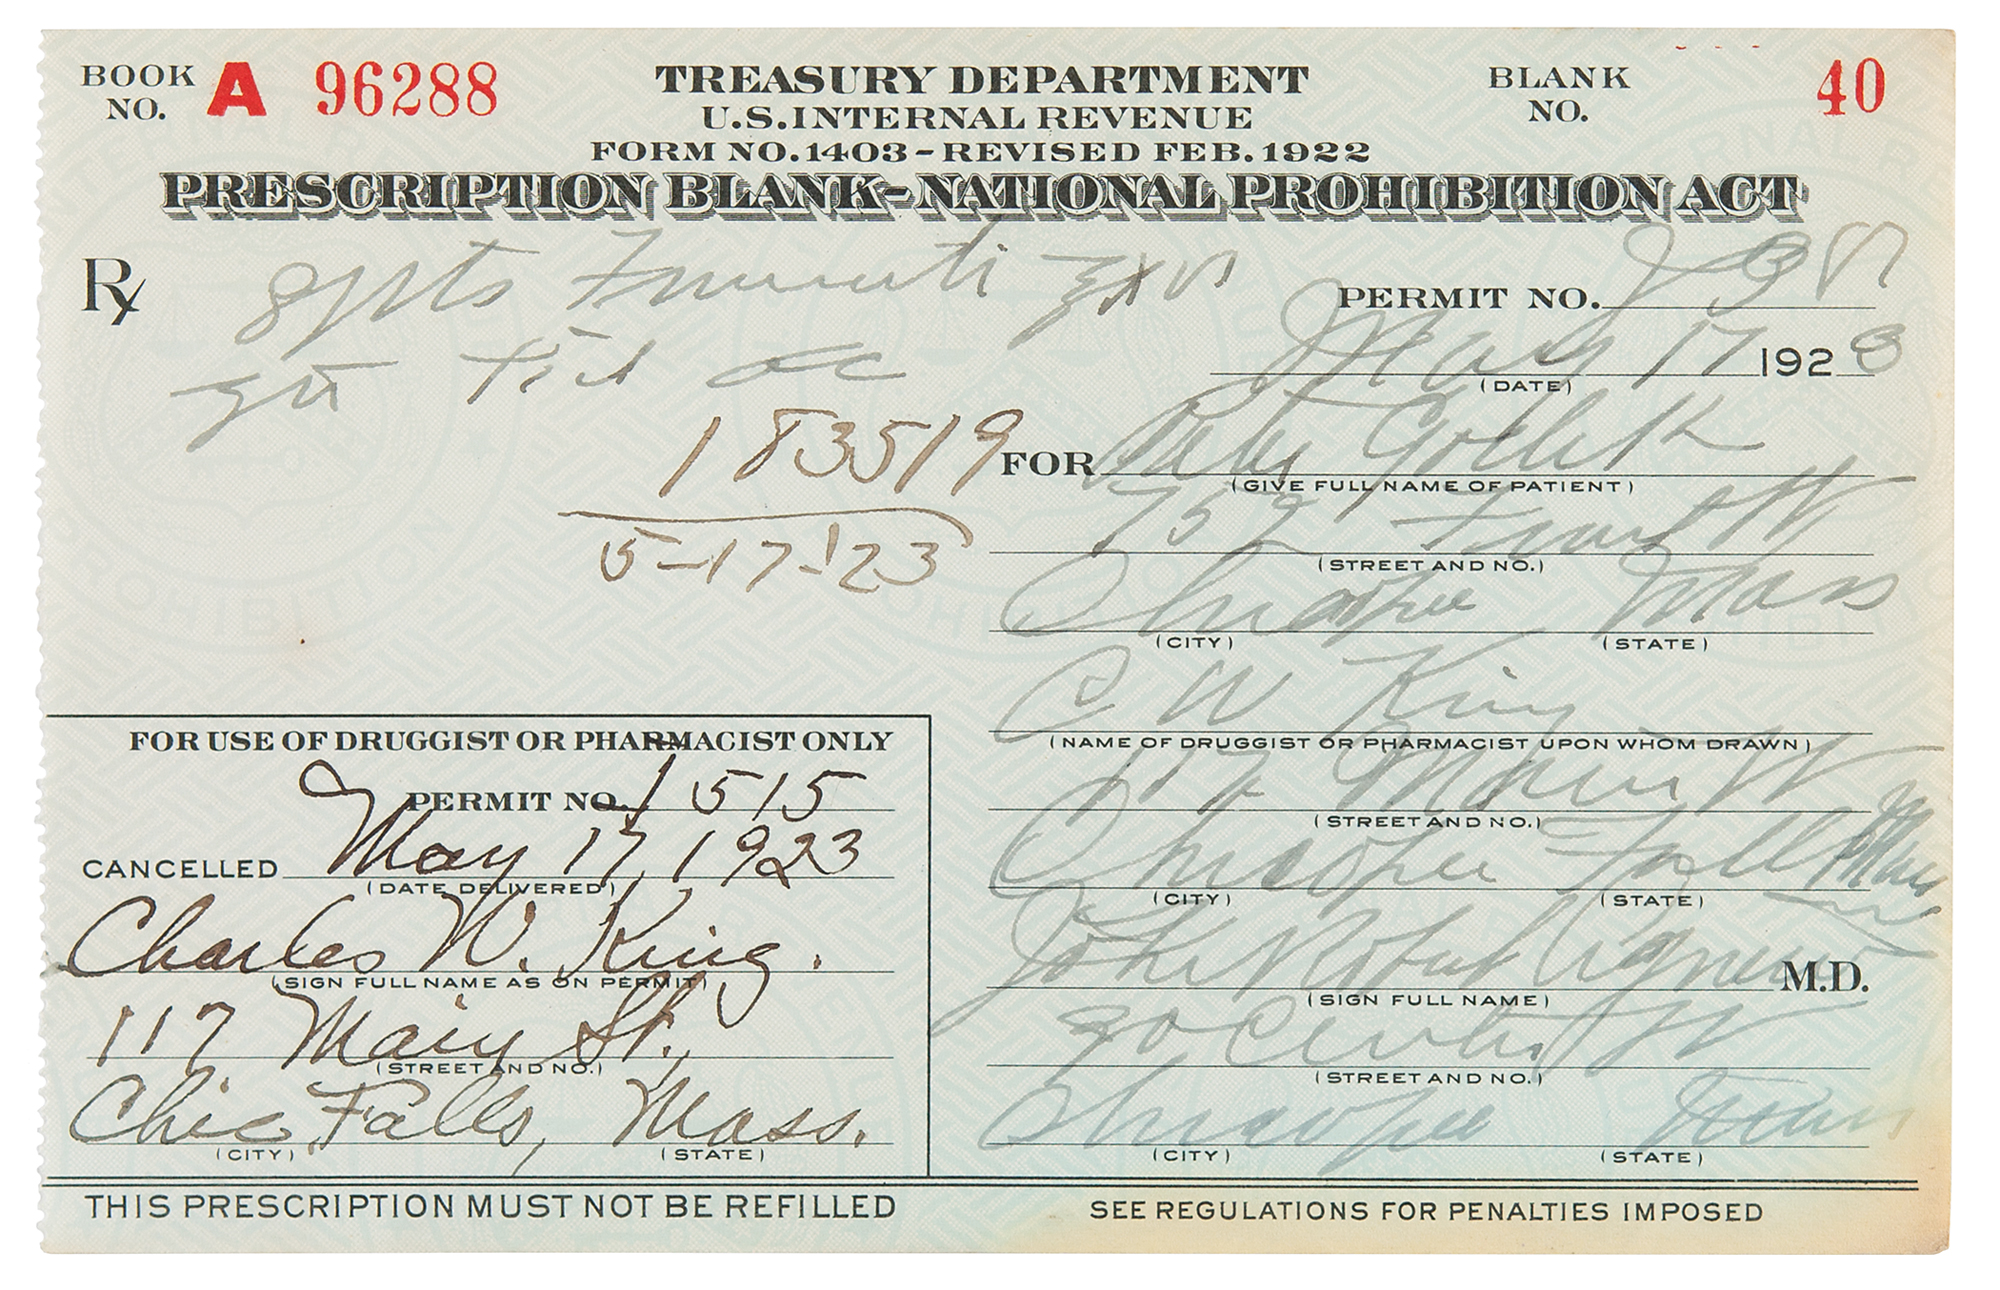 BOOK NO. A 96288
TREASURY DEPARTMENT
U.S. INTERNAL REVENUE
FORM NO. 1403 - REVISED FEB. 1922
BLANK NO. 40
PRESCRIPTION BLANK - NATIONAL PROHIBITION ACT
Rx
PERMIT NO.
May 17 1923
(DATE)
183519
5-17-'23
FOR
(GIVE FULL NAME OF PATIENT)
752 Front St
(STREET AND NO.)
Chicopee Mass
(CITY) (STATE)
C W King
(NAME OF DRUGGIST OR PHARMACIST UPON WHOM DRAWN)
117 Main St
(STREET AND NO.)
Chicopee Falls Mass
(CITY) (STATE)
John Robert M.D.
(SIGN FULL NAME)
90 Center St
(STREET AND NO.)
Chicopee Mass
(CITY) (STATE)
FOR USE OF DRUGGIST OR PHARMACIST ONLY
PERMIT NO. 1515
CANCELLED May 17, 1923
(DATE DELIVERED)
Charles W. King.
(SIGN FULL NAME AS ON PERMIT)
117 Main St.,
(STREET AND NO.)
Chic. Falls, Mass.
(CITY) (STATE)
THIS PRESCRIPTION MUST NOT BE REFILLED
SEE REGULATIONS FOR PENALTIES IMPOSED